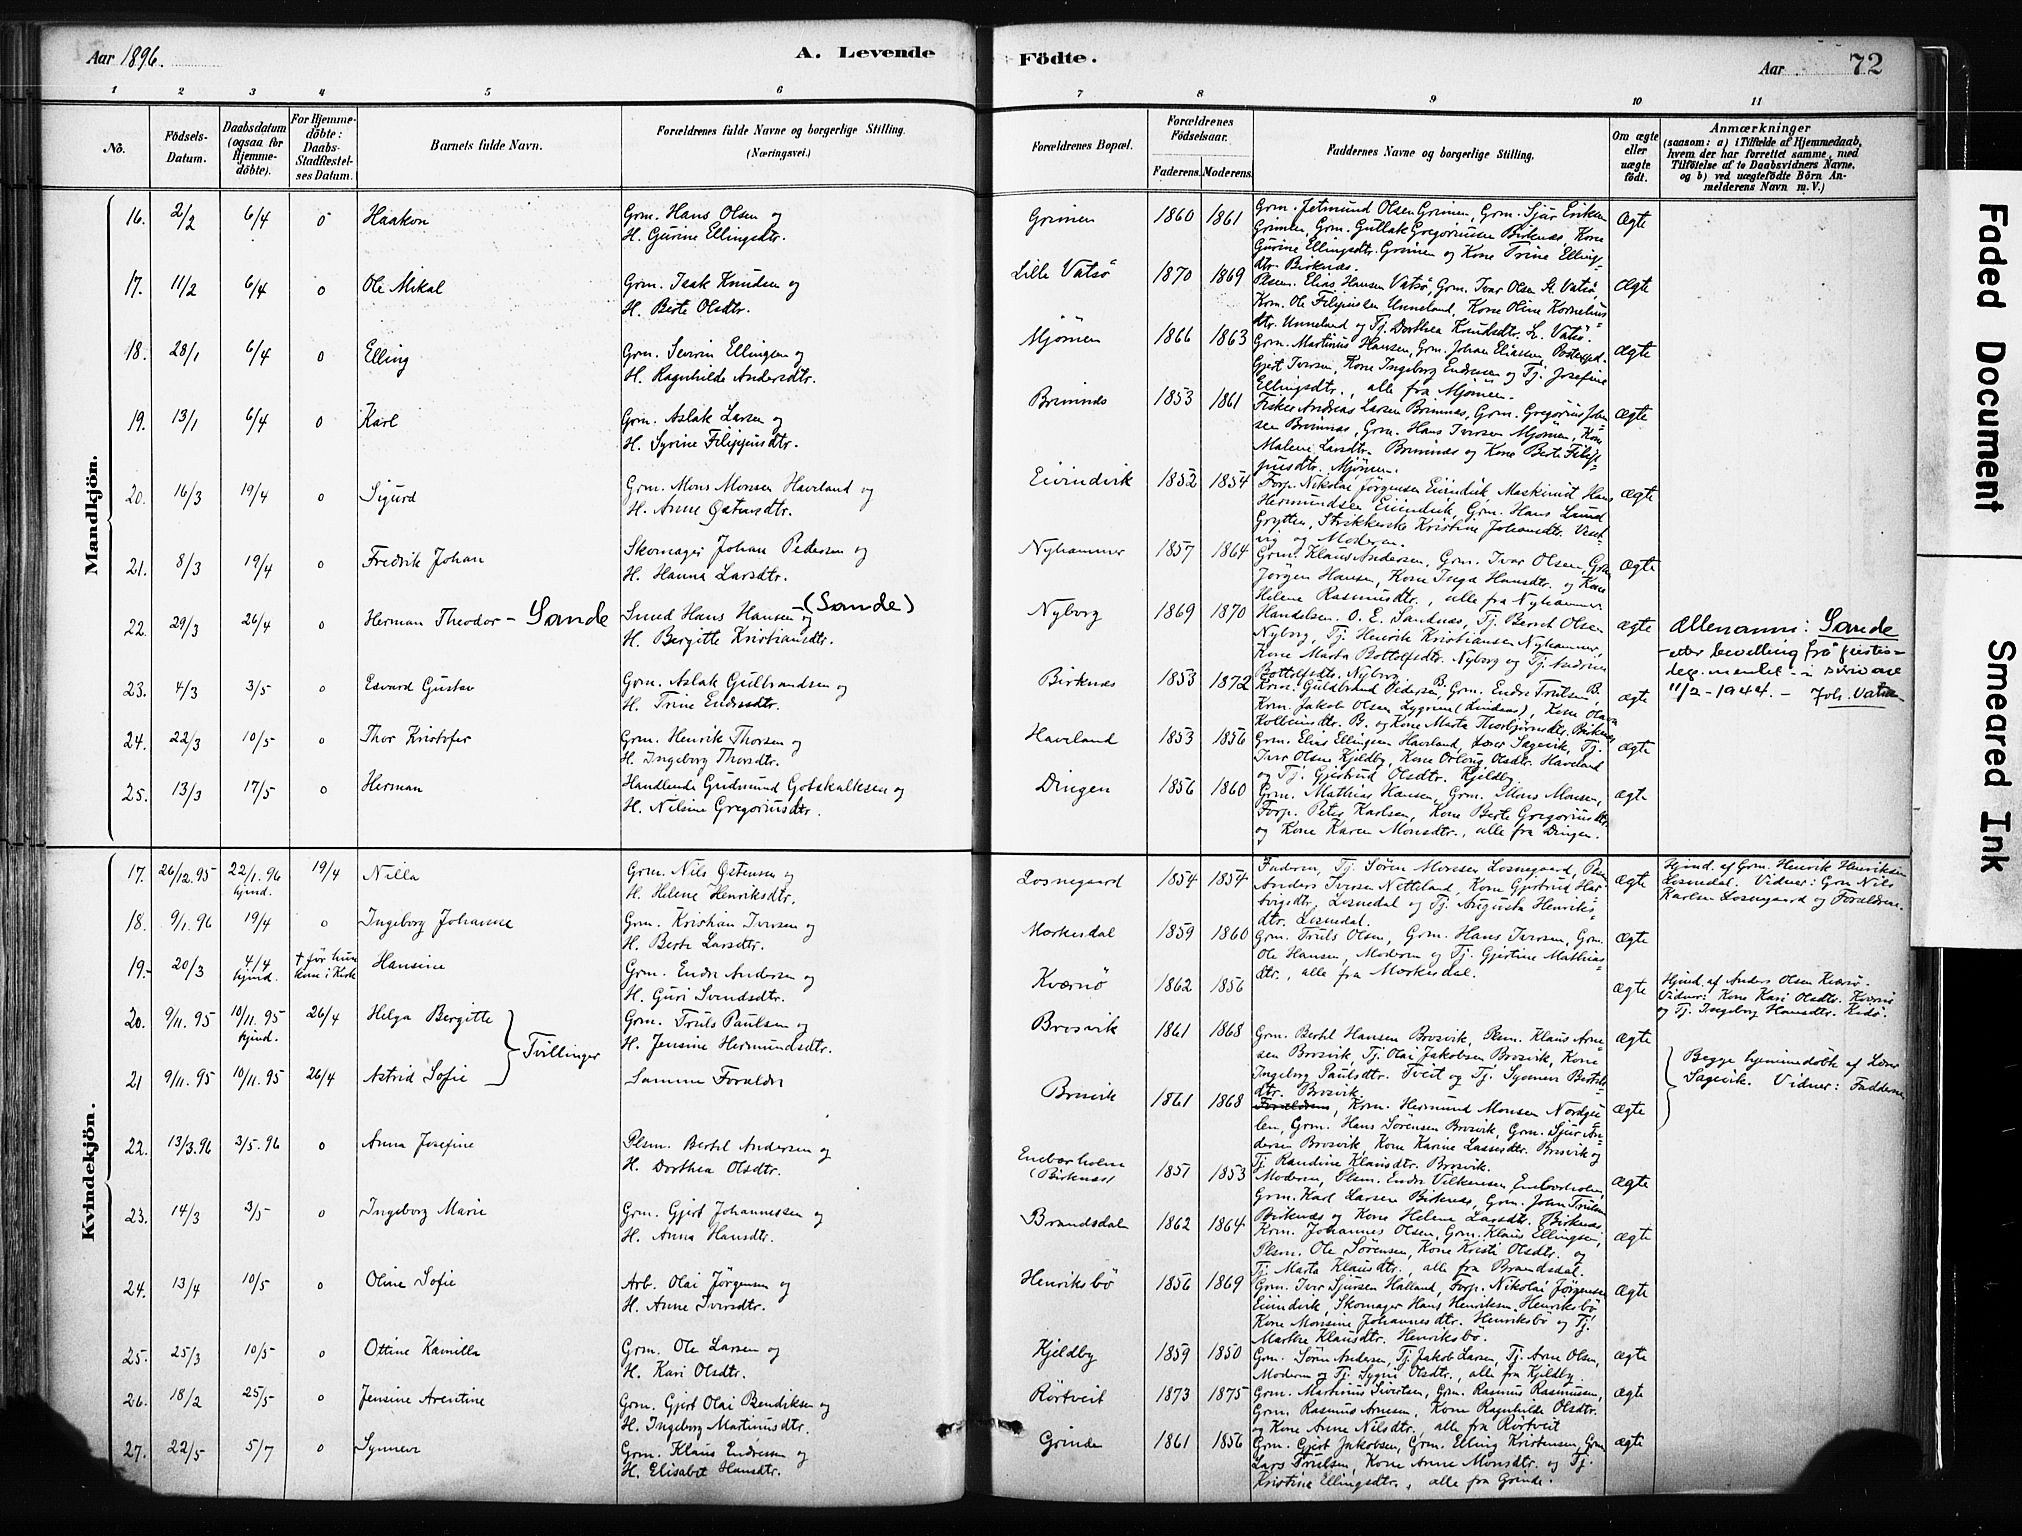 Aar 1896.
A. Levende Födte.
Aar 72
1 2 3 4 5 6 7 8 9 10 11
No.
Födsels-Datum.
Daabsdatum (ogsaa for Hjemme-döbte).
For Hjemme-döbte: Daabs-Stadfæstel-ses Datum.
Barnets fulde Navn.
Forældrenes fulde Navne og borgerlige Stilling.
(Næringsvei.)
Forældrenes Bopæl.
Forældrenes Födselsaar.
Faderens. Moderens.
Faddernes Navne og borgerlige Stilling.
Om ægte eller uægte födt.
Anmærkninger
(saasom: a) i Tilfælde af Hjemmedaab,
hvem der har forrettet samme, med
Tilföielse af to Daabsvidners Navne,
og b) ved uægtefödte Börn An-
melderens Navn m. V.)
Mandkjön.
16. 2/2 6/4 o Haakon
Grm. Hans Olsen og
H. Gurine Ellingsdtr.
Grimen 1860 1861
Grm. Jetmund Olsen Grimen, Grm. Sjur Eriksen
Grimen, Grm. Gullak Gregoriussen Birknæs, Kone
Gurine Ellingsdtr. Grimen og Kone Trine Ellings-
dtr. Birknæs.
Ægte
17. 11/2 6/4 o Ole Mikal
Grm. Isak Knudsen og
H. Berte Olsdtr.
Lille Vatsö 1870 1869
Plsm. Elias Hansen Vatsö, Grm. Ivar Olsen St. Vatsö,
Krm. Ole Filipussen Unneland, Kone Oline Kornelius-
dtr. Unneland og Tj. Dorthea Knudsdtr. L. Vatsö.
Ægte
18. 28/1 6/4 o Elling
Grm. Severin Ellingsen og
H. Ragnhilde Andersdtr.
Mjömen 1866 1863
Grm. Martinus Hansen, Grm. Johan Eliassen, Postexped.
Gjert Iversen, Kone Ingeborg Endresen og Tj. Josefine
Ellingsdtr., alle fra Mjömen.
Ægte
19. 13/1 6/4 o Karl
Grm. Aslak Larsen og
H. Syrine Filippusdtr.
Brimnæs 1853 1861
Fisker Andreas Larsen Brimnæs, Grm. Gregorius Johan-
sen Brimnæs, Grm. Hans Iversen Mjömen, Kone
Malene Larsdtr. Brimnæs og Kone Berte Filip-
pusdtr. Mjömen.
Ægte
20. 16/3 19/4 o Sigurd
Grm. Mons Monsen Haveland og
H. Anne Østensdtr.
Eivindvik 1852 1854
Forp. Nikolai Jørgensen Eivindvik, Maskinist Hans
Hermundsen Eivindvik, Grm. Hans Lund
Grytten, Strikkerske Kristine Johansdtr.
og Moderen.
Ægte
21. 8/3 19/4 o Fredrik Johan
Skomager Johan Pedersen og
H. Hanna Larsdtr.
Nyhammer 1857 1864
Grm. Klaus Andersen, Grm. Ivar Olsen, Grm.
Jörgen Hansen, Kone Inga Hansdtr. og Kone
Helene Rasmusdtr., alle fra Nyhammer
Ægte
22. 29/3 26/4 o Herman Theodor - Sande
Smed Hans Hansen - (Sande)
og
H. Bergitte Kristiansdtr.
Nyborg 1869 1870
Handelsm. O. E. Sandnæs, Tj. Bernt Olsen
Nyborg, Tj. Henrik Kristiansen Nyhammer,
Kone Marta Bottolfsdtr. Nyborg og Tj. Andrine
Bottolfsdtr. Nyborg
Ægte
Ættenamn: Sande
- etter bevelling frå justis-
dep.mentet - i skriv ave
11/2 - 1944. - Joh. Vatne
23. 4/3 3/5 o Edvard Gustav
Grm. Aslak Gulbrandsen og
H. Trine Endresdtr.
Birknæs 1853 1872
Krm. Guldbrand Pedersen B., Grm. Endre Trulsen B.,
Krm. Jakob Olsen Lygren (Lindaas), Kone Olava
Kolbeinsdtr. B. og Kone Marta Thorbjørnsdtr. Birknæs
Ægte
24. 22/3 10/5 o Thor Kristofer
Grm. Henrik Thorsen og
H. Ingeborg Thorsdtr.
Haveland 1853 1856
Grm. Elias Ellingsen Haveland, Lærer Sagevik, Tj.
Ivar Olsen Kjeldby, Kone Orlaug Olsdtr. Haveland
og Tj. Gjertrud Olsdtr. Kjeldby.
Ægte
25. 13/3 17/5 o Herman
Handlende Gudmund Gotskalksen og
H. Nilsine Gregoriusdtr.
Dingen 1856 1860
Grm. Mathias Hansen, Grm. Mons Monsen,
Forp. Peter Karlsen, Kone Berte Gregoriusdtr.
og Kone Karen Monsdtr., alle fra Dingen.
Ægte
Kvindekjön.
17. 26/12.95 22/1.96 hjmd. 19/4 Nilla
Grm. Nils Østensen og
H. Helene Henriksdtr.
Losnegaard 1854 1854
Faderen, Tj. Sören Monsen Losnegaard, Plsm.
Anders Iversen Netteland, Kone Gjertrud Har-
vigsdtr. Losnedal og Tj. Augusta Henriks-
dtr. Losnedal.
Ægte
Hjmd. af Grm. Henrik Henriksen
Losnedal. Vidner: Grm Nils
Karlsen Losnegaard og Forældrene.
18. 9/1.96 19/4 o Ingeborg Johanne
Grm. Kristian Iversen og
H. Berte Larsdtr.
Morkesdal 1859 1860
Grm. Truls Olsen, Grm. Hans Iversen, Grm.
Ole Hansen, Moderen og Tj. Gjertine Mathias-
dtr., alle fra Morkesdal.
Ægte
19. 20/3 4/4 hjmd. † før hun kom i Kirk Hansine
Grm. Endre Andersen og
H. Guri Svendsdtr.
Kværnö 1862 1856
Ægte
Hjmd. af Anders Olsen Kværnö.
Vidner: Kone Kari Olsdtr. Kværnö
og Tj. Ingeborg Hansdtr. Kedö.
20. 9/11.95 10/11.95 hjmd. 26/4 Helga Bergitte
Grm. Truls Paulsen og
H. Jensine Hermundsdtr.
Tvillinger
Brosvik 1861 1868
Grm. Bertel Hansen Brosvik, Plsm. Klaus Arne-
sen Brosvik, Tj. Olai Jakobsen Brosvik, Kone
Ingeborg Paulsdtr. Tveit og Tj. Synneve Bertels-
dtr. Brosvik
Ægte
Begge hjemmedöbt af Lærer
Sagevik. Vidner: Fadderne
21 9/11.95 10/11.95 26/4 Astrid Sofie
Samme Forældre
Brosvik 1861 1868
Forældrene, Krm. Hermund Monsen Nordgu-
len, Grm. Hans Sörensen Brosvik, Grm. Sjur An-
dersen Brosvik, Kone Karine Lassesdtr. Brosvik og
Tj. Randine Klausdtr. Brosvik.
Ægte
22. 13/3.96 3/5.96 o Anna Josefine
Plsm. Bertel Andersen og
H. Dorthea Olsdtr.
Enebærholmen
(Birknæs) 1857 1853
Moderen, Plsm. Endre Vilkensen, Enebærholm,
Grm. Karl Larsen Birknæs, Grm. John Trulsen
Birknæs og Kone Helene Larsdtr. Birknæs
Ægte
23. 14/3 3/5 o Ingeborg Marie
Grm. Gjert Johannessen og
H. Anna Hansdtr.
Brandsdal 1862 1864
Krm. Johannes Olsen, Grm. Klaus Ellingsen,
Plsm. Ole Sörensen, Kone Kristi Olsdtr. og
Tj. Marta Klausdtr., alle fra Brandsdal.
Ægte
24. 13/4 10/5 o Oline Sofie
Arb. Olai Jørgensen og
H. Anne Iversdtr.
Henriksbö 1856 1869
Grm. Ivar Sjursen Halland, Forp. Nikolai Jørgensen
Eivindvik, Skomager Hans Henriksen Henriksbö
Kone Monsine Johannesdtr. Henriksbö og Tj.
Marthe Klausdtr. Henriksbö.
Ægte
25. 25/3 10/5 o Ottine Kamilla
Grm. Ole Larsen og
H. Kari Olsdtr.
Kjeldby 1859 1850
Grm. Sören Andersen, Tj. Jakob Larsen, Tj. Arne Olsen,
Moderen og Tj. Sygni Olsdtr., alle fra Kjeldby.
Ægte
26. 18/2 25/5 o Jensine Arentine
Grm. Gjert Olai Bendiksen og
H. Ingeborg Martinusdtr.
Rörtveit 1873 1875
Grm. Martinus Sivertsen, Grm. Rasmus Rasmussen,
Grm. Rasmus Arnesen, Kone Ragnhilde Olsdtr.
og Kone Anne Nilsdtr., alle fra Rörtveit
Ægte
27. 22/5 5/7 o Synneve
Grm. Klaus Endresen og
H. Elisabet Hansdtr.
Grinde 1861 1856
Grm. Gjert Jakobsen, Grm. Elling Kristensen, Grm
Lars Trulsen, Kone Anne Monsdtr. og Tj.
Kristine Ellingsdtr., alle fra Grinde.
Ægte
Faded Document
Smeared Ink